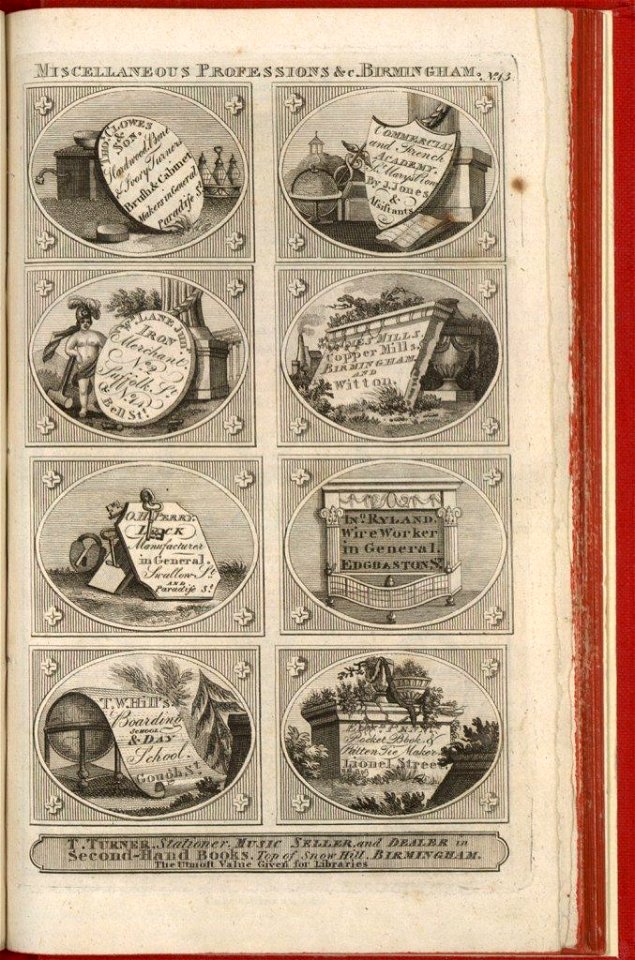 Miscellaneous Professions &c. Birmingham. No. 13
Thos. Clowes
& Son,
Hardwood, Bone
& Ivory Turners
Brush & Cabinet
Makers in General
Paradise St.
Commercial
and French
Academy,
St. Marys Row
By J. Jones
&
Assistants
W. Lane Junr.
Iron
Merchant
No. 29
Suffolk St.
& No. 21
Bell St.
James Mills,
Copper Mills,
Birmingham,
and
Witton.
O.H. Perry,
Lock
Manufacturer
in General.
Swallow St.
and
Paradise St.
Jno. Ryland.
Wire Worker
in General.
Edgbaston St.
T. W. Hill's
Boarding
School
& Day
School.
Gough St.
Penn
Pocket Book &
Patten Tie Maker
Lionel Street
T. Turner, Stationer, Music Seller, and Dealer in
Second-Hand Books, Top of Snow Hill, Birmingham.
The Utmost Value Given for Libraries